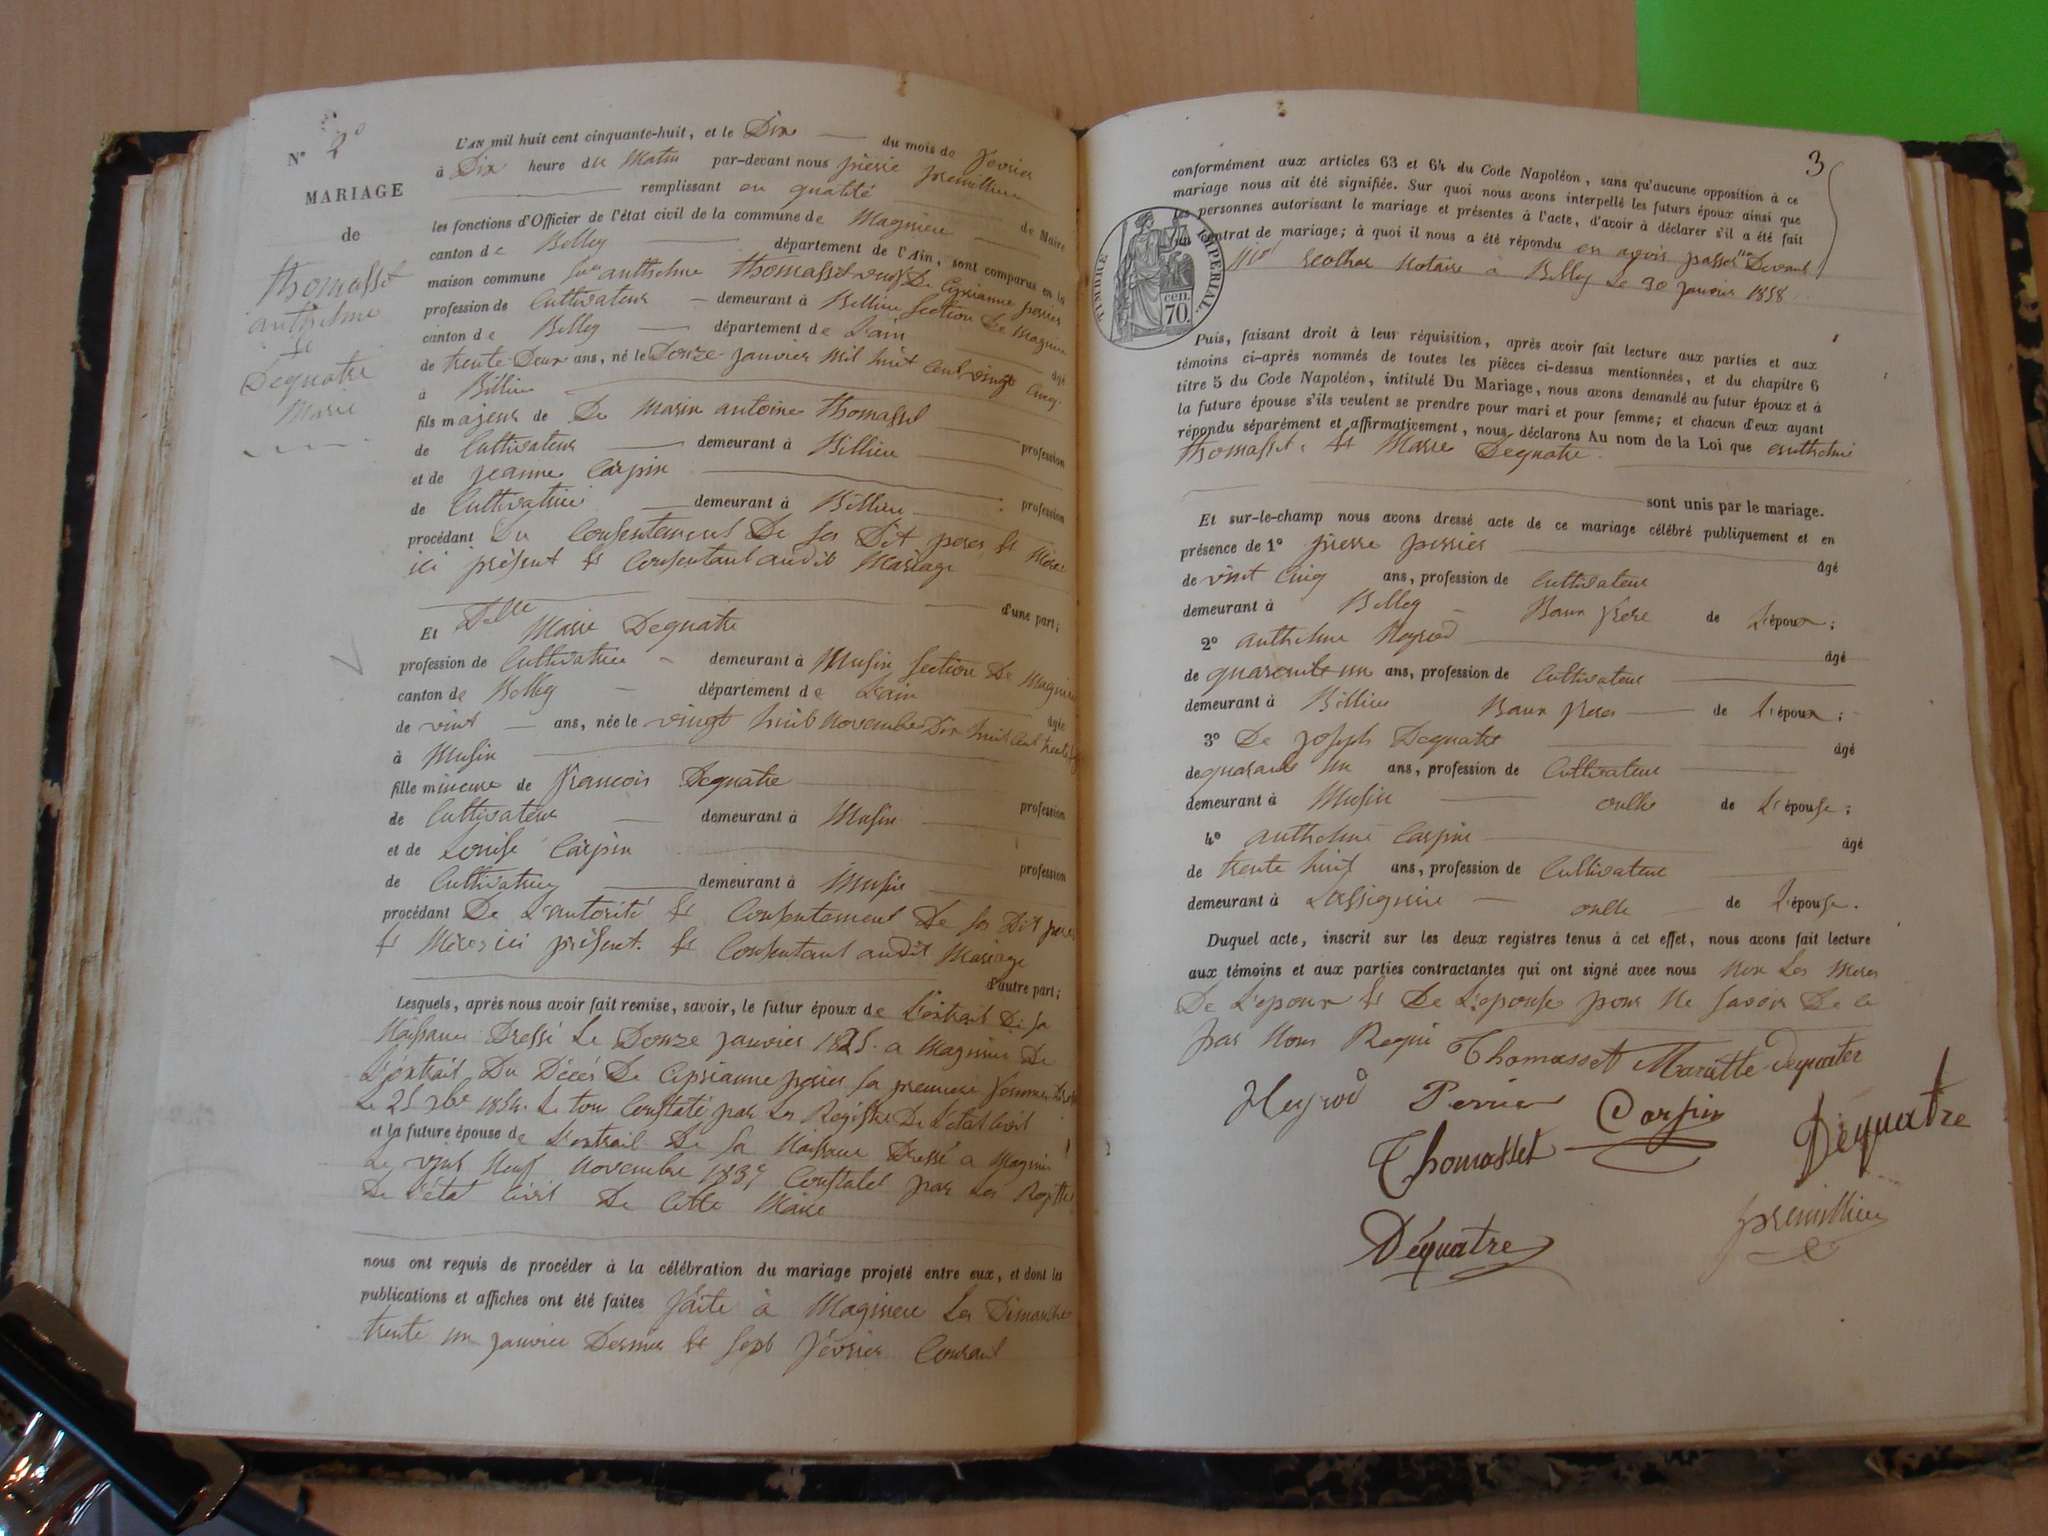 N° 2°
MARIAGE
de
Thomasset
anthelme
&
Dequatre
Marie
L'AN mil huit cent cinquante-huit, et le Dix du mois de février
à Dix heure du Matin par-devant nous pierre premillieu
remplissant en qualité de Maire
les fonctions d'Officier de l'état civil de la commune de Magnieu
canton de Belley département de l'Ain, sont comparus en la
maison commune anthelme Thomasset veuf De Ciprianne perier
profession de Cultivateur demeurant à Billieu Section De Magnieu
canton de Belley département de L'ain âgé
de trente Deux ans, né le Douze janvier mil huit cent vingt cinq
à Billieu
fils majeur de De Marin antoine Thomasset profession
de Cultivateur demeurant à Billieu
et de jeanne Carpin profession
de Cultivatrice demeurant à Billieu
procédant Du Consentement De ses Dit peres & Meres
ici présent & Consentant audit Mariage
d'une part;
Et Delle Marie Dequatre
profession de Cultivatrice demeurant à Musin Section De Magnieu
canton de Belley département de L'ain âgée
de vint ans, née le vingt huit novembre Dix huit cent trente
à Musin
fille mineure de françois Dequatre profession
de Cultivateur demeurant à Musin
et de Louise Carpin profession
de Cultivatrice demeurant à Musin
procédant De L'autorité & Consentement De ses Dit peres
& Meres ici présent & Consentant audit Mariage
d'autre part;
Lesquels, après nous avoir fait remise, savoir, le futur époux de L'extrait De sa
Naissance Dressé Le Douze janvier 1825 a Magnieu De
L'extrait Du Décès De Ciprianne perier sa premiere femme
Le 25 1854 Le tou Constaté par Les Registre De L'etat Civil
et la future épouse de L'extrait De sa Naissance Dressé a Magnieu
Le vint Neuf Novembre 1837 Constatés par Les Registres
De L'état Civil De Cette Mairie
nous ont requis de procéder à la célébration du mariage projeté entre eux, et dont les
publications et affiches ont été faites faite à Magnieu Les Dimanche
trente un janvier Dernier & Sept février Courant
3
conformément aux articles 63 et 64 du Code Napoléon, sans qu'aucune opposition à ce
mariage nous ait été signifiée. Sur quoi nous avons interpellé les futurs époux ainsi que
les personnes autorisant le mariage et présentes à l'acte, d'avoir à déclarer s'il a été fait
un contrat de mariage; à quoi il nous a été répondu en avoir passer Devant
Notaire à Belley Le 30 janvier 1858
TIMBRE IMPÉRIAL.
70 cen.
Puis, faisant droit à leur réquisition, après avoir fait lecture aux parties et aux
témoins ci-après nommés de toutes les pièces ci-dessus mentionnées, et du chapitre 6
titre 5 du Code Napoléon, intitulé Du Mariage, nous avons demandé au futur époux et à
la future épouse s'ils veulent se prendre pour mari et pour femme; et chacun d'eux ayant
répondu séparément et affirmativement, nous déclarons Au nom de la Loi que anthelme
Thomasset & Marie Dequatre
sont unis par le mariage.
Et sur-le-champ nous avons dressé acte de ce mariage célébré publiquement et en
présence de 1° pierre perrier âgé
de vint Cinq ans, profession de Cultivateur
demeurant à Belley Baux frere de L'époux;
2° anthelme Heyriod âgé
de quarente un ans, profession de Cultivateur
demeurant à Billieu Baux freres de L'époux;
3° De joseph Dequatre âgé
de quarante un ans, profession de Cultivateur
demeurant à Musin oncle de L'épouse;
4° anthelme Carpin âgé
de trente huit ans, profession de Cultivateur
demeurant à Lassignieu oncle de L'épouse.
Duquel acte, inscrit sur les deux registres tenus à cet effet, nous avons fait lecture
aux témoins et aux parties contractantes qui ont signé avec nous Non Les Meres
De L'epoux & De L'epouse pour Ne Savoir De ce
par Nous Requi Thomasset Mariette Dequater
Heyriod Perrier Carpin Déquatre
Thomasset
Déquatre premillieu